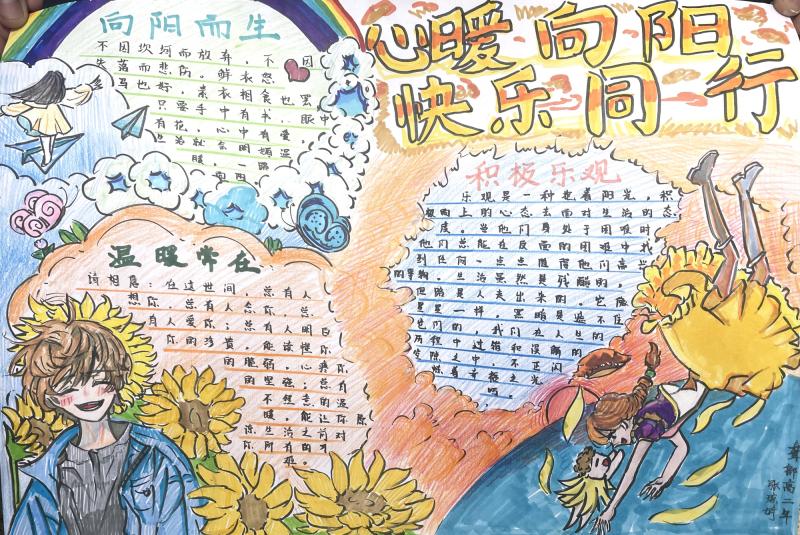 心暖向阳
快乐同行
向阳而生
不因坎坷而放弃，不因
失落而悲伤。鲜衣怒
马也好，素衣相食也罢
只要手中有书，眼中
有花，心中有爱，
生活就会明媚温
暖，一路
向阳
积极乐观
乐观是一种趁着阳光，积
极向上的心态去面对生活的态
度。当他们身处于困难时
他们总能在反面的困难中找
到任何一点点值得他们高兴
的事物。生活虽然是残酷的，
但路是人走出来的，它像
星星一样，黑暗是遮不住
它们的。我们在人生的
历程中过错和误解的
中，不正闪
着幸福之光
吗。
温暖常在
请相信：在这世间，总有人
想你，总有人念你，总
有人爱你；总有人明白
你的珍贵，能读懂你
的脆弱，心疼你
的坚强；总有
不想走的温
暖，能让你
你生活之前对
你所有的才
难。
高二年